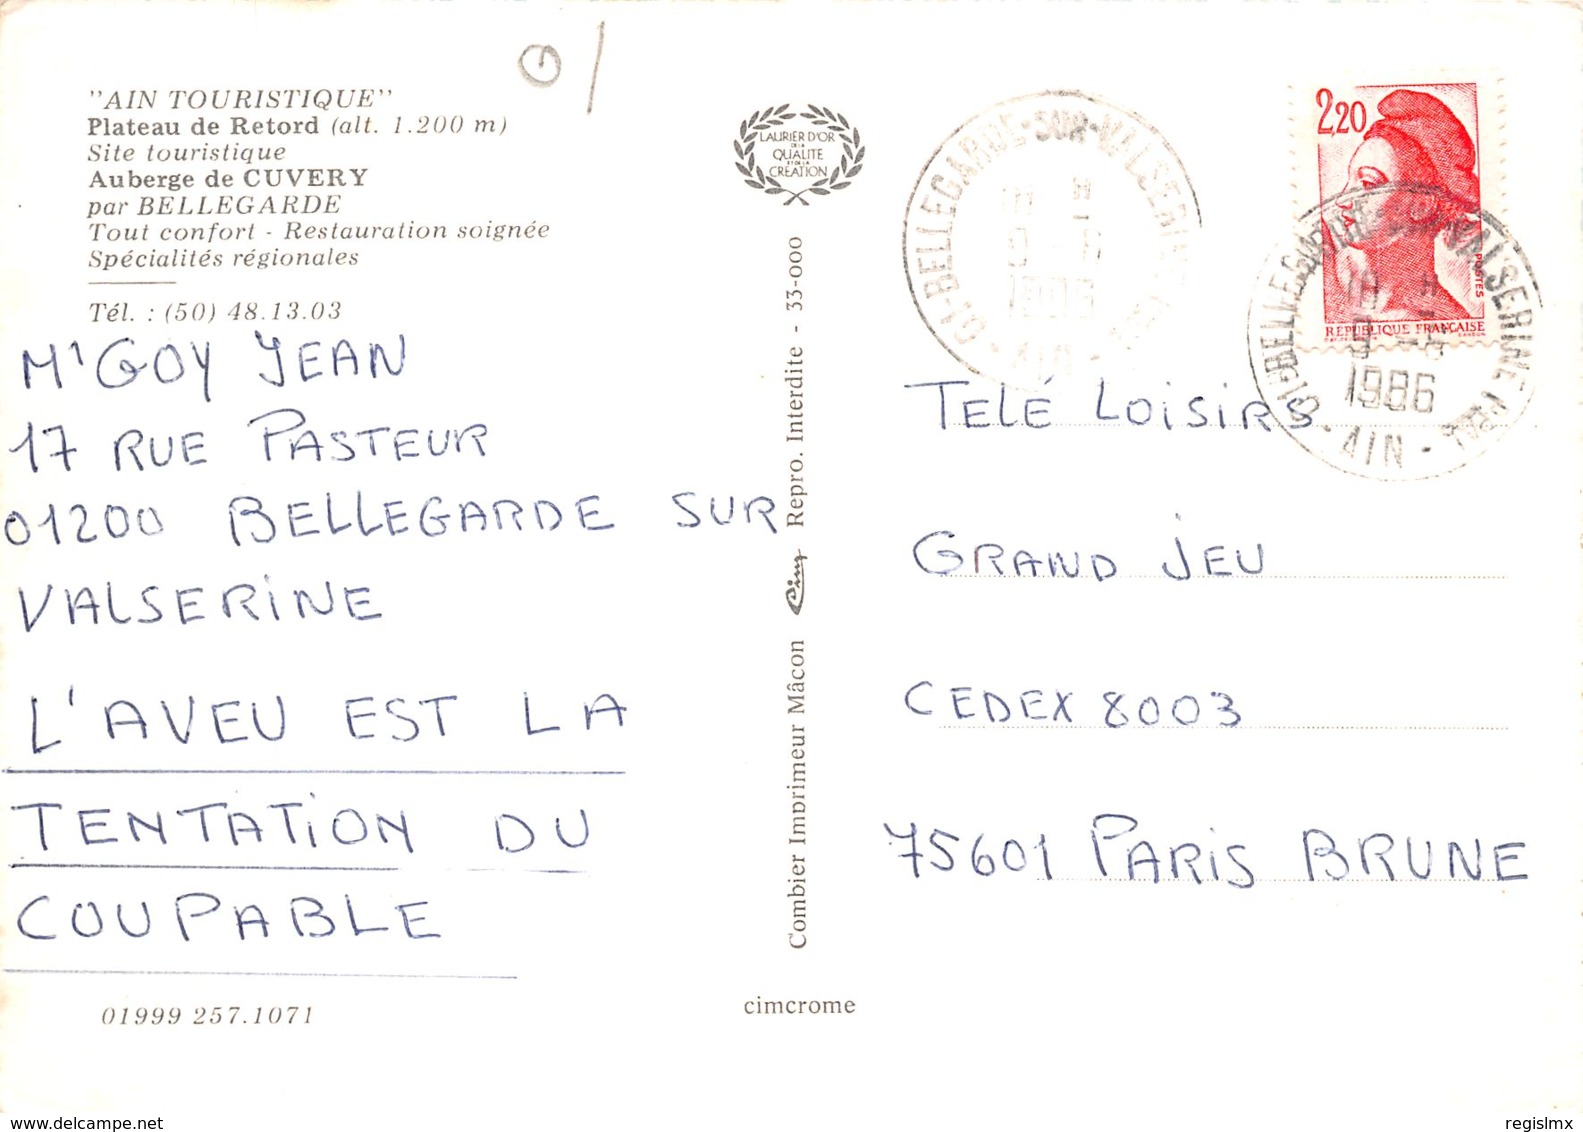 "AIN TOURISTIQUE"
Plateau de Retord (alt. 1.200 m)
Site touristique
Auberge de CUVERY
par BELLEGARDE
Tout confort - Restauration soignée
Spécialités régionales
Tél. : (50) 48.13.03
Mr GOY JEAN
17 RUE PASTEUR
01200 BELLEGARDE SUR
VALSERINE
L'AVEU EST LA
TENTATION DU
COUPABLE
01999 257.1071
LAURIER D'OR
DE LA
QUALITE
ET DE LA
CRÉATION
Combier Imprimeur Mâcon Cim Repro. Interdite - 33-000
cimcrome
01-BELLEGARDE-SUR-VALSERINE
1986
- AIN -
2,20
POSTES
REPUBLIQUE FRANÇAISE
01-BELLEGARDE-SUR-VALSERINE PPAL
1986
- AIN -
TELÉ LOISIRS
GRAND JEU
CEDEX 8003
75601 PARIS BRUNE
www.delcampe.net
regislmx